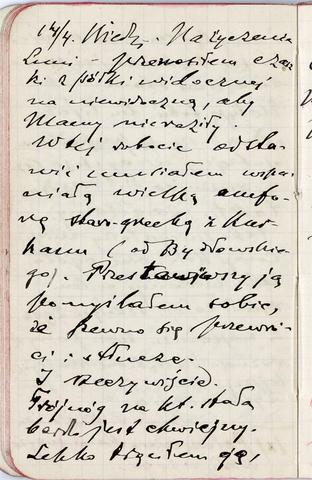 14/4. Niedz. Na życzenie
Luni - przenosiłem czasz-
ki z półki widocznej
na niewidoczną, aby
Mamy nie raziły.
W tej robocie odsta-
wić musiałem wspa-
niałą wielką amfo-
rę staro-grecką z Kur-
hanu (od Bydłowskie-
go). Przestawiwszy ją
pomyślałem sobie,
że pewno się przewró-
ci i stłucze.
I rzeczywiście.
Trójnóg na kt. stała
bardz. jest chwiejny.
Lekko trąciłem go,